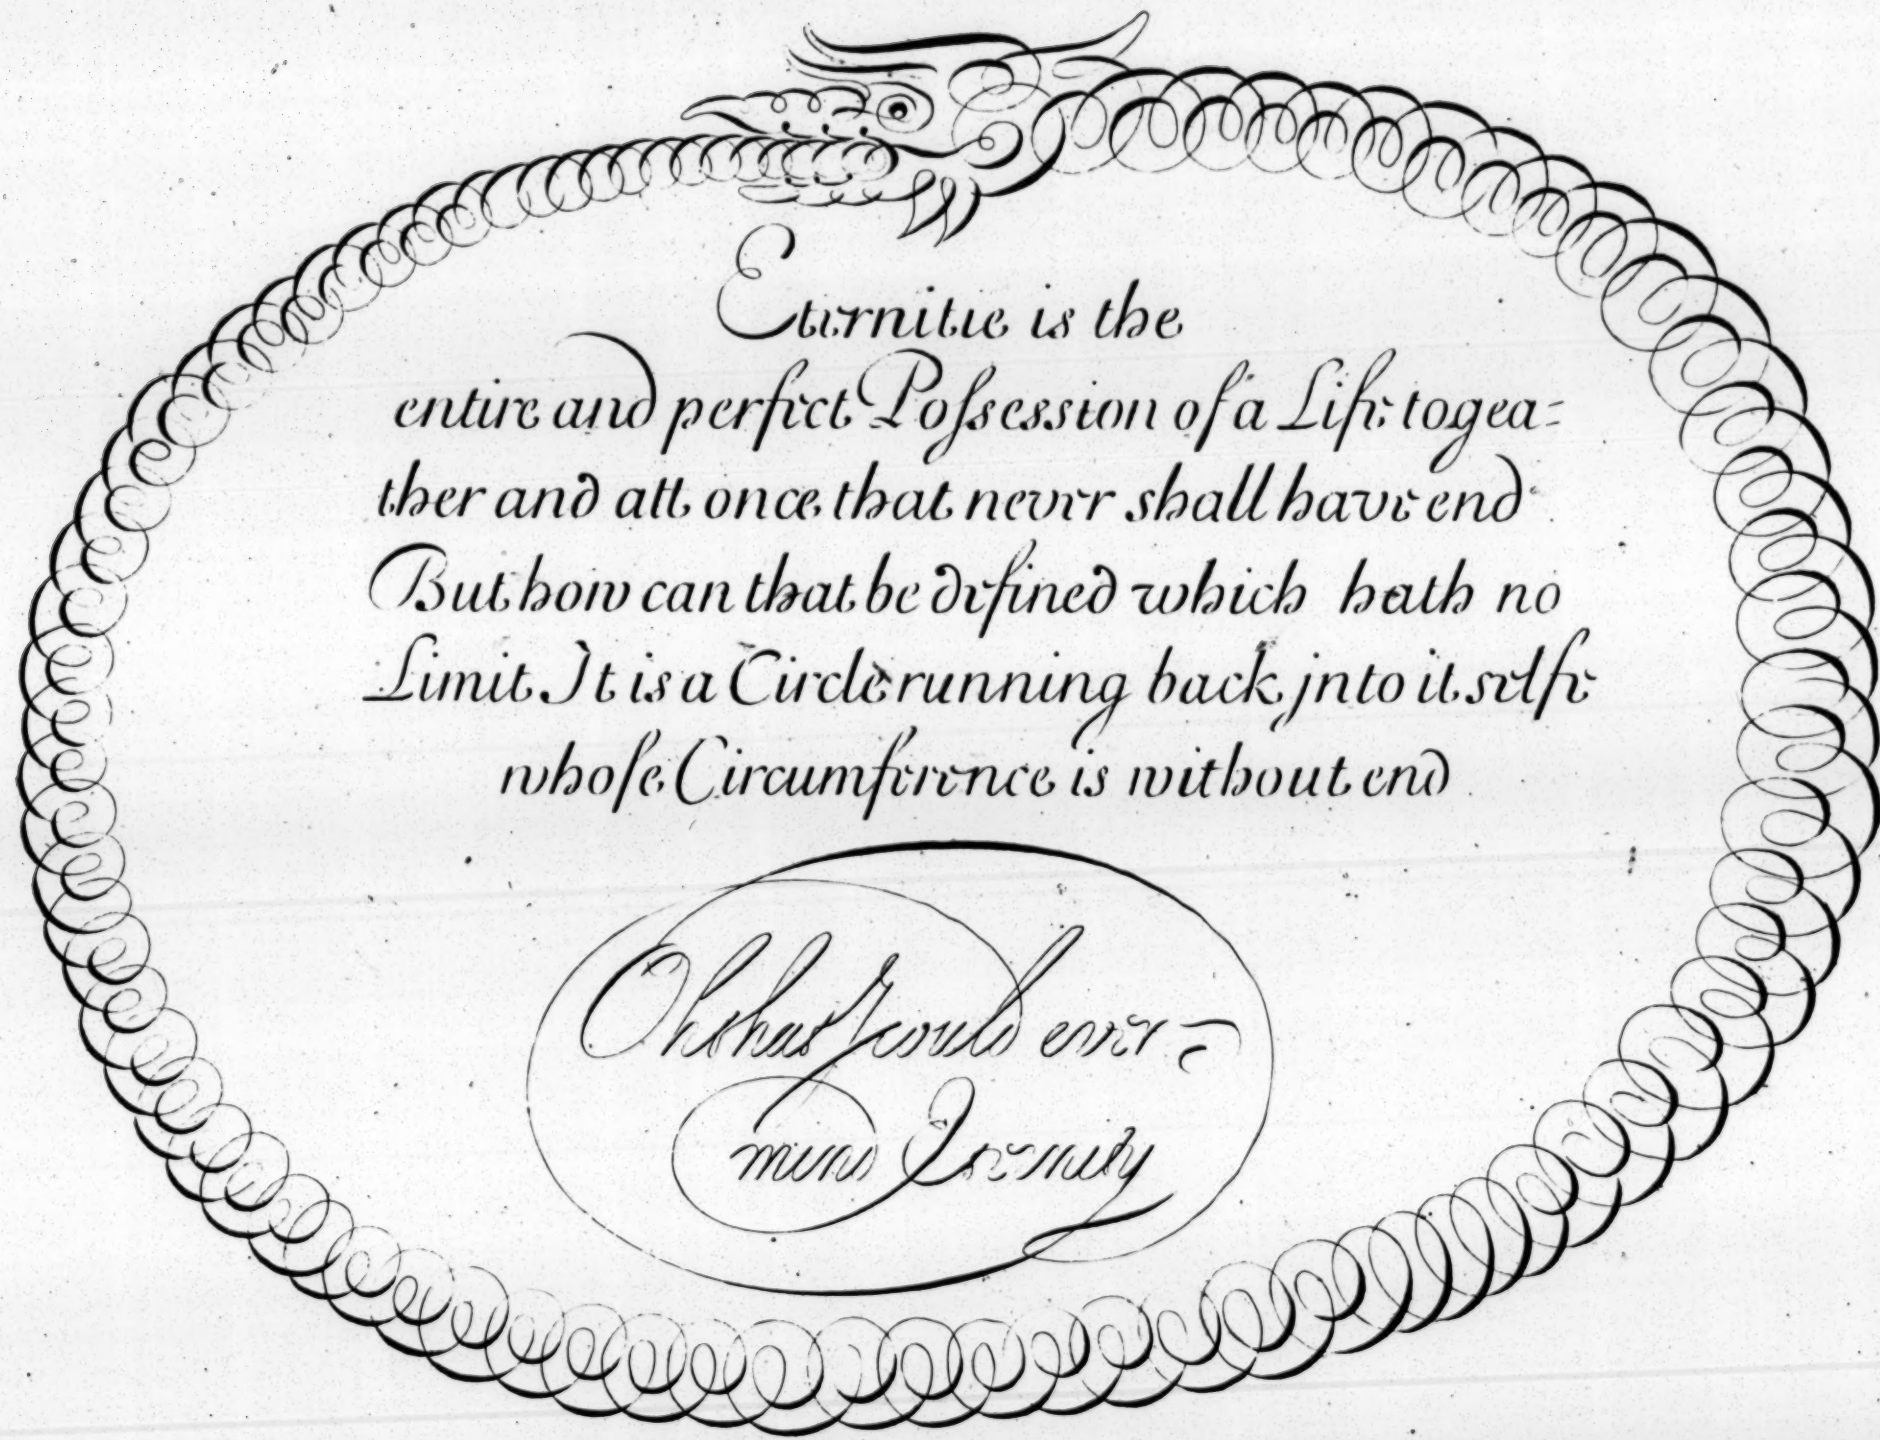 Eternitie is the
entire and perfect Poſsession of a Life togea=
ther and att once that never shall have end
But how can that be defined which hath no
Limit. It is a Circle running back jnto it selfe
whoſe Circumference is without end
Oh that I could ever
mind Eternity